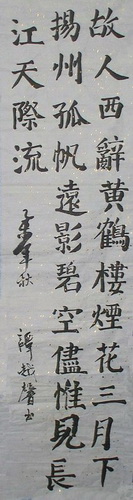 故人西辭黃鶴樓煙花三月下
揚州孤帆遠影碧空儘惟見長
江天際流
年秋
譚